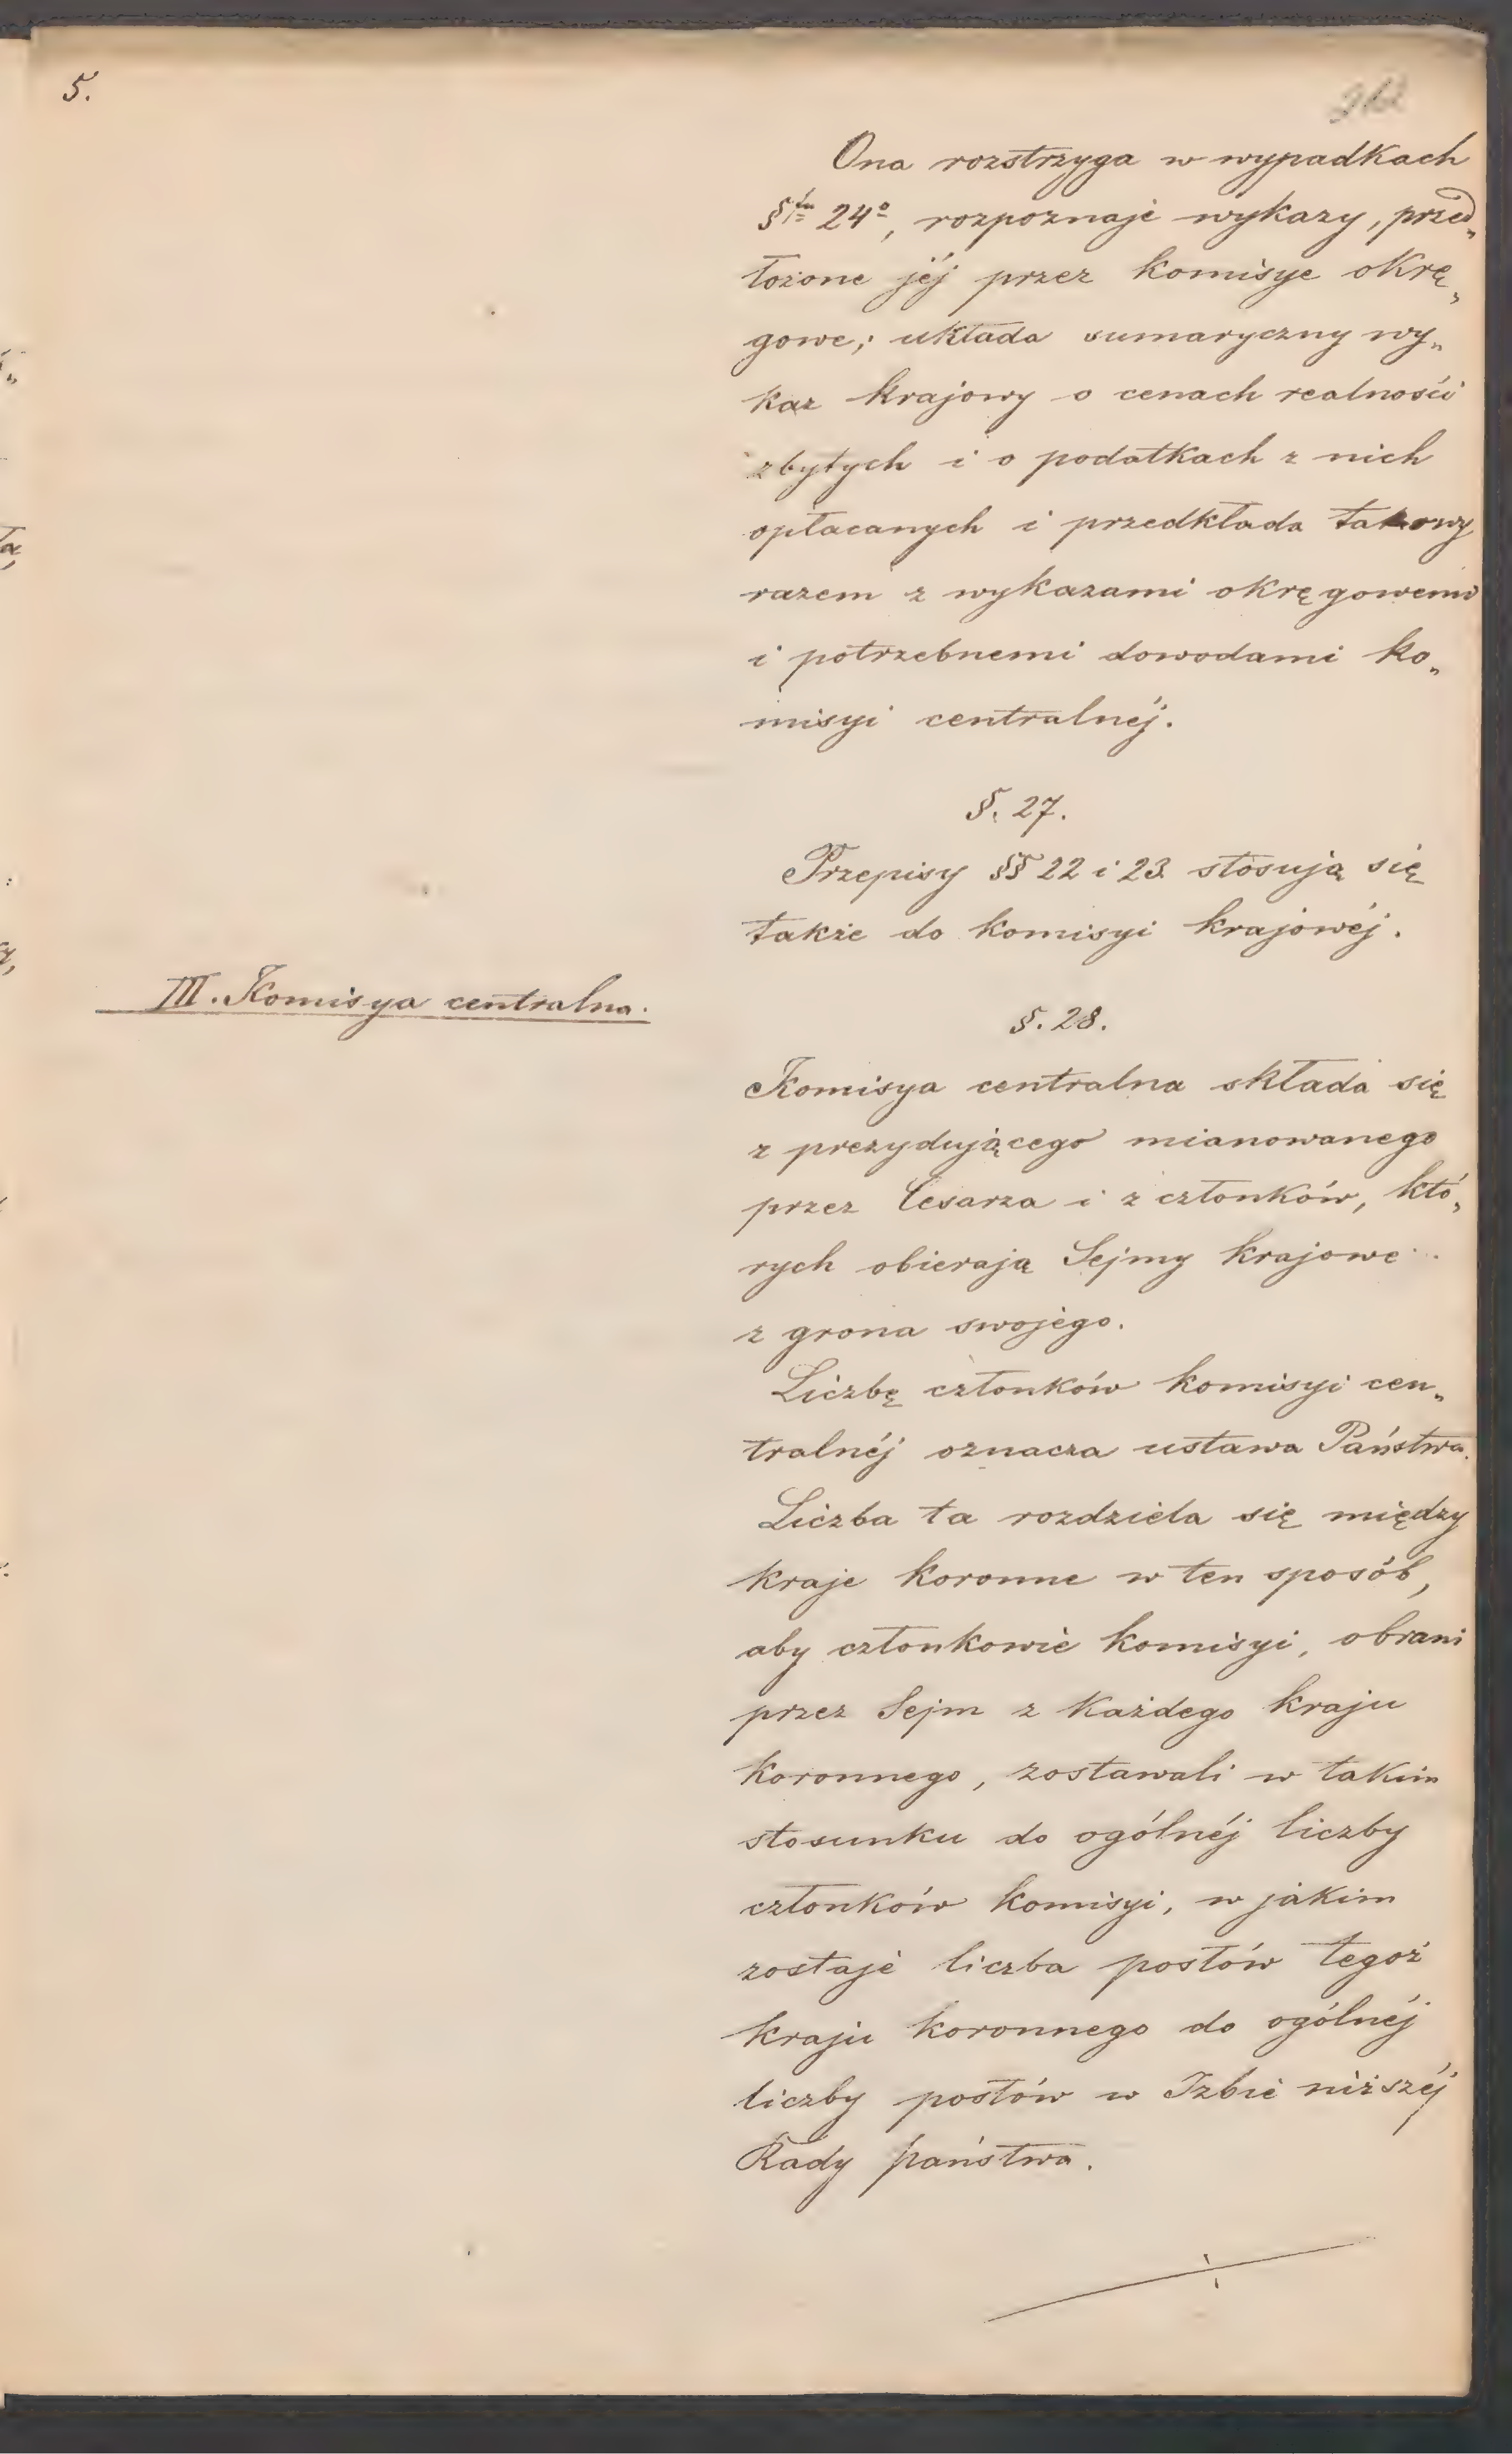 5.
Ona rozstrzyga w wypadkach
§fu 24o, rozpoznaje wykazy, przed„
łożone jéj przez komisye okrę„
gowe; układa sumaryczny wy„
kaz krajowy o cenach realności
zbytych i o podatkach z nich
opłacanych i przedkłada takowy
razem z wykazami okręgowemi
i potrzebnemi dowodami ko„
misyi centralnéj.
§. 27.
Przepisy §§ 22 i 23 stosują się
także do komisyi krajowéj.
III. Komisya centralna.
§. 28.
Komisya centralna składa się
z prezydującego mianowanego
przez Cesarza i z członków, któ„
rych obierają Sejmy krajowe
z grona swojego.
Liczbę członków komisyi cen„
tralnéj oznacza ustawa Państwa.
Liczba ta rozdziela się między
kraje koronne w ten sposób,
aby członkowie komisyi, obrani
przez Sejm z każdego kraju
koronnego, zostawali w takim
stosunku do ogólnéj liczby
członków komisyi, w jakim
zostaje liczba posłów tegoż
kraju koronnego do ogólnéj
liczby posłów w Izbie niższéj
Rady państwa.